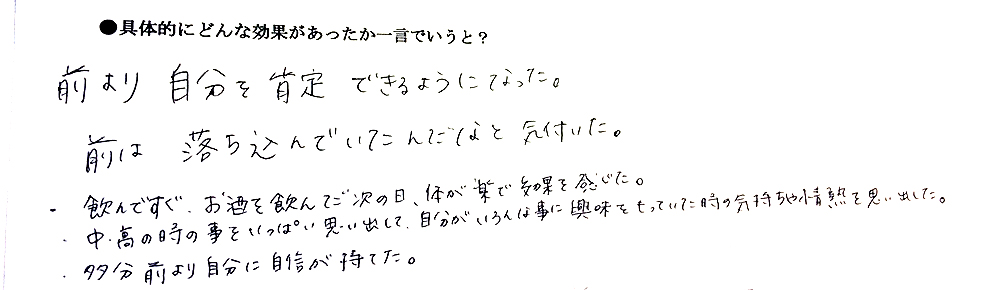 ●具体的にどんな効果があったか一言でいうと？
前より 自分を 肯定 できるようになった。
前は 落ち込んでいたんだなと 気付いた。
・飲んですぐ、お酒を飲んだ次の日、体が楽で効果を感じた。
・中・高の時の事をいっぱい思い出して、自分がいろんな事に興味をもっていた時の気持ちや情熱を思い出した。
・多分前より自分に自信が持てた。